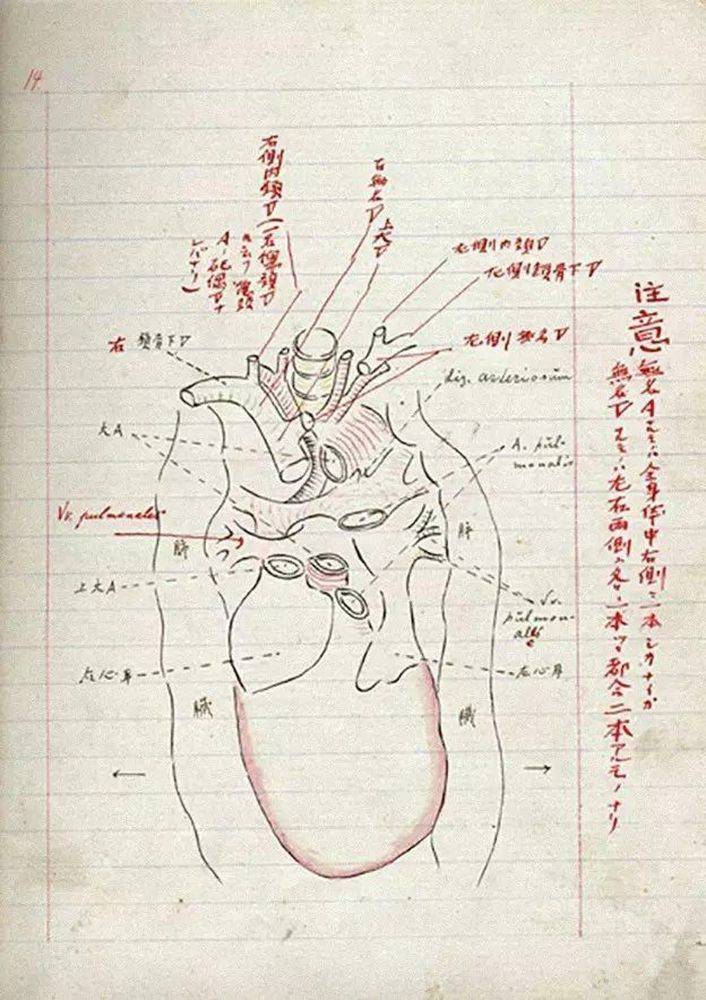 14
右側内頸V(右側頸V
右無名V
上大V
左側内頸V
左側鎖骨下V
左側無名V
右 鎖骨下V
lig. arteriosum
大A
A. pul-
monalis
Vv. pulmonales
肺
肺
上大A
Vv.
pulmon-
ales
右心耳
左心耳
臓
臓
注意
無名Aナルモノハ全身体中右側ニ一本シカナイガ
無名Vナルモノハ左右両側ニ各々一本ヅツ都合二本アルモノナリ